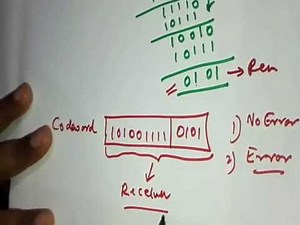 11110
10010
10111
0101 → Rem
Codeword 101001111 0101 1) No Error
2) Error
Receiver